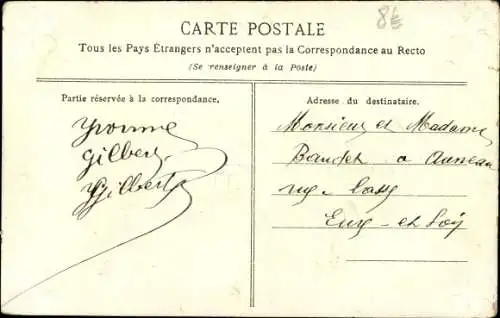 8€
CARTE POSTALE
Tous les Pays Étrangers n'acceptent pas la Correspondance au Recto
(Se renseigner à la Poste)
Partie réservée à la correspondance.
Adresse du destinataire.
Yvonne
Gilbert
Gilberte
Monsieur et Madame
Baudet a Auneau
rue
Eure-et-Loir